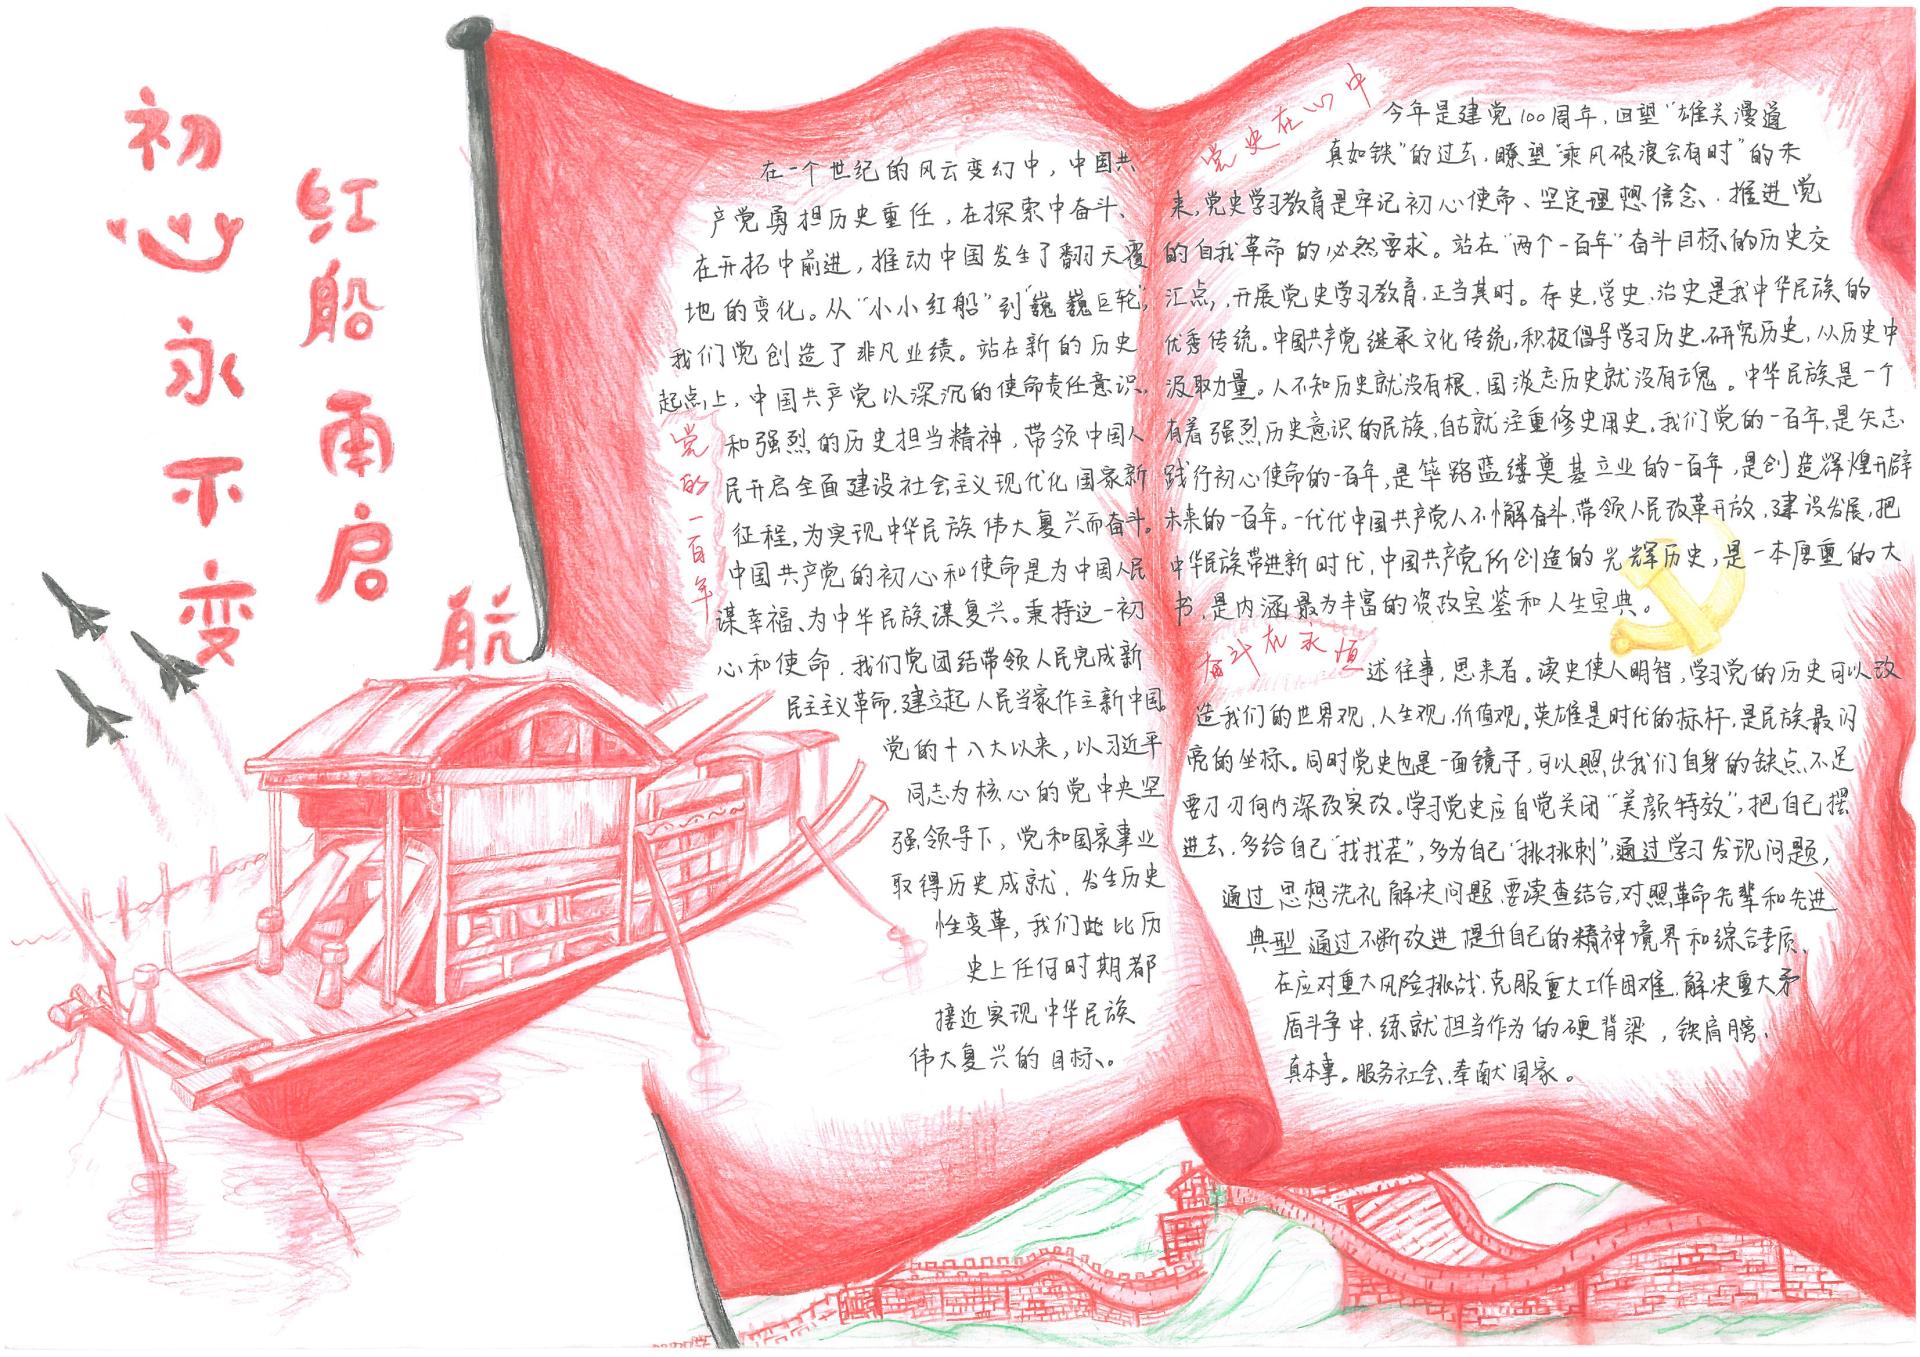 初心永不变
红船再启航
党的一百年
在一个世纪的风云变幻中，中国共
产党勇担历史重任，在探索中奋斗、
在开拓中前进，推动中国发生了翻天覆
地的变化。从“小小红船”到“巍巍巨轮”，
我们党创造了非凡业绩。站在新的历史
起点上，中国共产党以深沉的使命责任意识、
和强烈的历史担当精神，带领中国人
民开启全面建设社会主义现代化国家新
征程，为实现中华民族伟大复兴而奋斗。
中国共产党的初心和使命是为中国人民
谋幸福、为中华民族谋复兴。秉持这一初
心和使命，我们党团结带领人民完成新
民主主义革命，建立起人民当家作主新中国。
党的十八大以来，以习近平
同志为核心的党中央坚
强领导下，党和国家事业
取得历史成就，发生历史
性变革，我们此比历
史上任何时期都
接近实现中华民族
伟大复兴的目标。
党史在心中
今年是建党100周年，回望“雄关漫道
真如铁”的过去，瞭望“乘风破浪会有时”的未
来，党史学习教育是牢记初心使命、坚定理想信念、推进党
的自我革命的必然要求。站在“两个一百年”奋斗目标的历史交
汇点，开展党史学习教育，正当其时。存史，学史，治史是我中华民族的
优秀传统。中国共产党继承文化传统，积极倡导学习历史，研究历史，从历史中
汲取力量。人不知历史就没有根，国淡忘历史就没有魂。中华民族是一个
有着强烈历史意识的民族，自古就注重修史用史。我们党的一百年，是矢志
践行初心使命的一百年，是筚路蓝缕奠基立业的一百年，是创造辉煌开辟
未来的一百年。一代代中国共产党人不懈奋斗，带领人民改革开放，建设发展，把
中华民族带进新时代，中国共产党所创造的光辉历史，是一本厚重的大
书，是内涵最为丰富的资政宝鉴和人生宝典。
奋斗在永恒
述往事，思来者。读史使人明智，学习党的历史可以改
造我们的世界观，人生观，价值观。英雄是时代的标杆，是民族最闪
亮的坐标。同时党史也是一面镜子，可以照出我们自身的缺点不足
要刀刃向内深改实改。学习党史应自觉关闭“美颜特效”，把自己摆
进去，多给自己“找找茬”，多为自己“挑挑刺”，通过学习发现问题，
通过思想洗礼解决问题，要读查结合，对照革命先辈和先进
典型通过不断改进提升自己的精神境界和综合素质、
在应对重大风险挑战，克服重大工作困难，解决重大矛
盾斗争中，练就担当作为的硬背梁，铁肩膀、
真本事。服务社会，奉献国家。